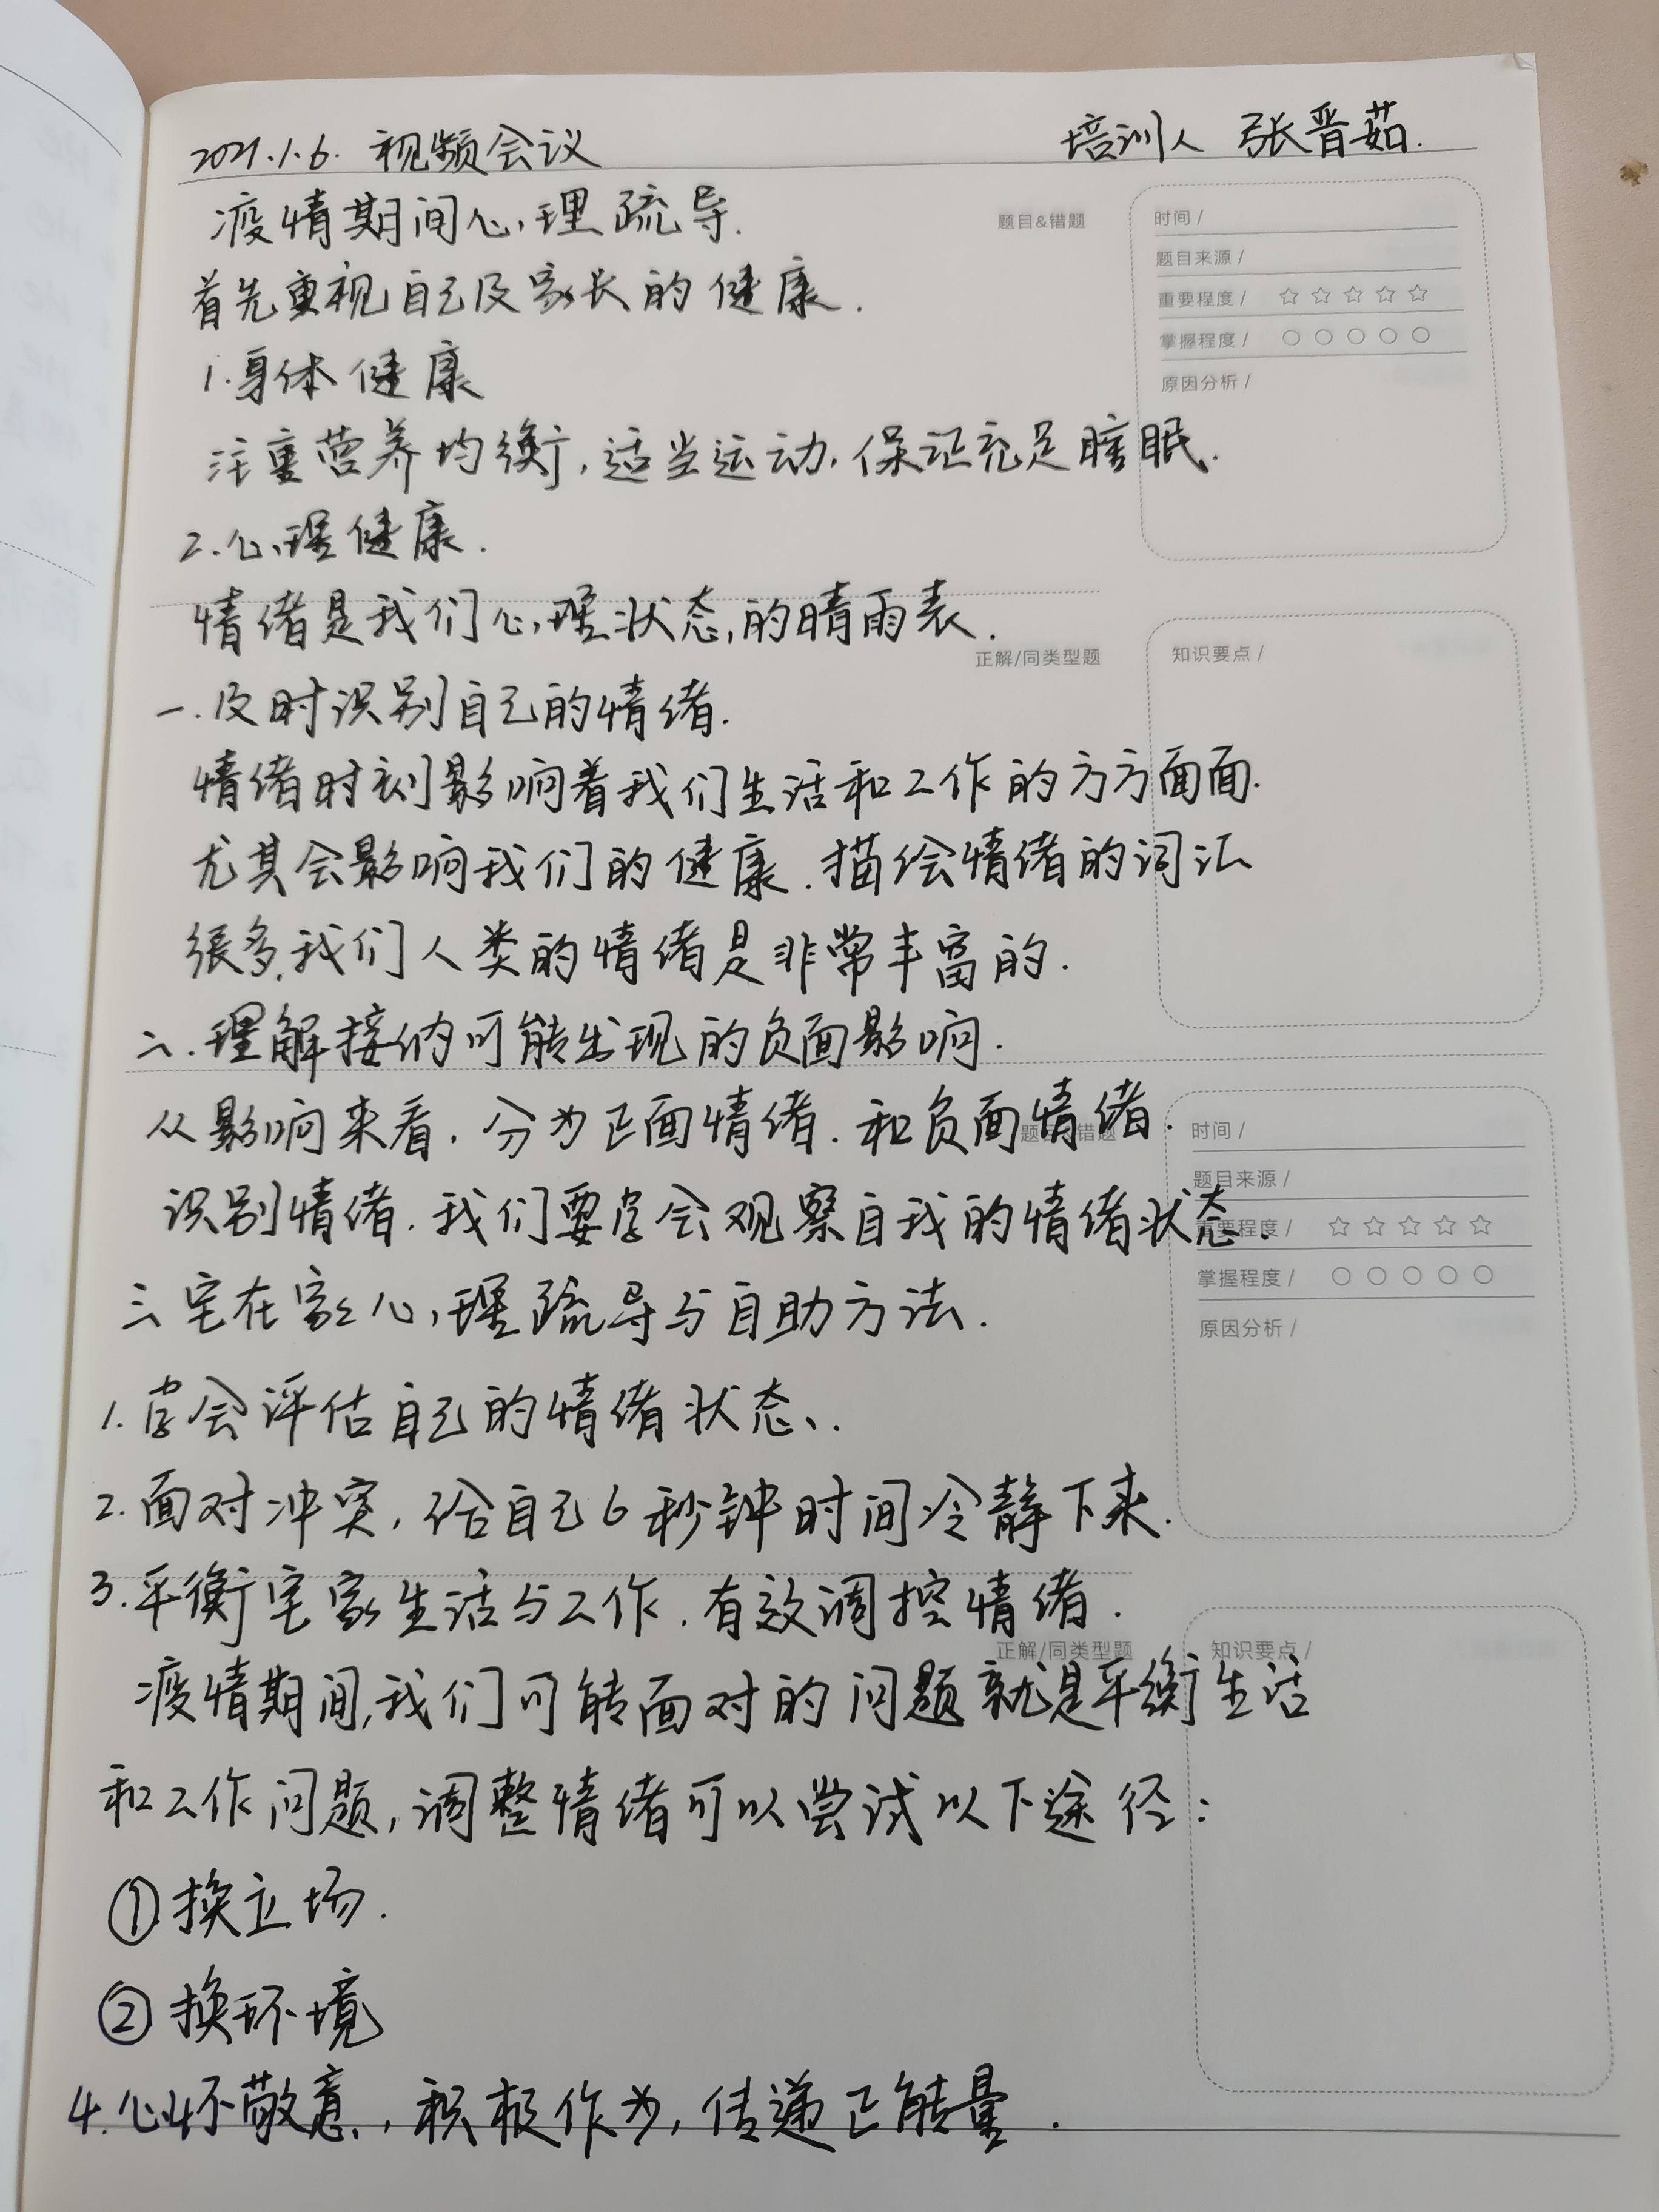 2021.1.6. 视频会议 培训人 张晋茹.
疫情期间心理疏导.
题目&错题
时间 /
题目来源 /
重要程度 / ☆ ☆ ☆ ☆ ☆
掌握程度 / ○ ○ ○ ○ ○
原因分析 /
首先重视自己及家长的健康.
1.身体健康
注重营养均衡,适当运动,保证充足睡眠.
2.心理健康.
情绪是我们心理状态的晴雨表.
正解/同类型题
知识要点 /
一.及时识别自己的情绪.
情绪时刻影响着我们生活和工作的方方面面.
尤其会影响我们的健康.描绘情绪的词汇
很多,我们人类的情绪是非常丰富的.
二.理解接纳可能出现的负面影响.
从影响来看.分为正面情绪.和负面情绪.
题目&错题
时间 /
题目来源 /
识别情绪.我们要学会观察自我的情绪状态.
重要程度 / ☆ ☆ ☆ ☆ ☆
掌握程度 / ○ ○ ○ ○ ○
原因分析 /
三.宅在家心理疏导与自助方法.
1.学会评估自己的情绪状态.
2.面对冲突,给自己6秒钟时间冷静下来.
3.平衡宅家生活与工作.有效调控情绪.
正解/同类型题
知识要点 /
疫情期间,我们可能面对的问题就是平衡生活
和工作问题,调整情绪可以尝试以下途径:
①换立场.
②换环境
4.心怀敬意,积极作为,传递正能量.